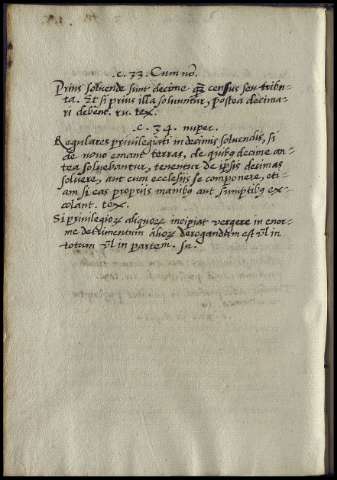 .c. 33. Cum nō.
Prius soluende sunt decime q̄ʒ census seu tribu-
ta. Et si prius illa soluuntur, postea decima-
ri debent. tex.
.c. 34. nuper.
Regulares priuilegiati in decimis soluendis, si
de nouo emant terras, de quibꝰ decime an-
tea soluebantur, tenentur de ipsis decimas
soluere, aut cum ecclesijs se componere, eti-
am si eas proprijs manibꝰ aut sumptibꝰ ex-
colant. tex.
Si priuilegioꝝ aliquoꝝ incipiat vergere in enor-
me detrimentum derogandum est vl̄ in
totum vl̄ in partem.